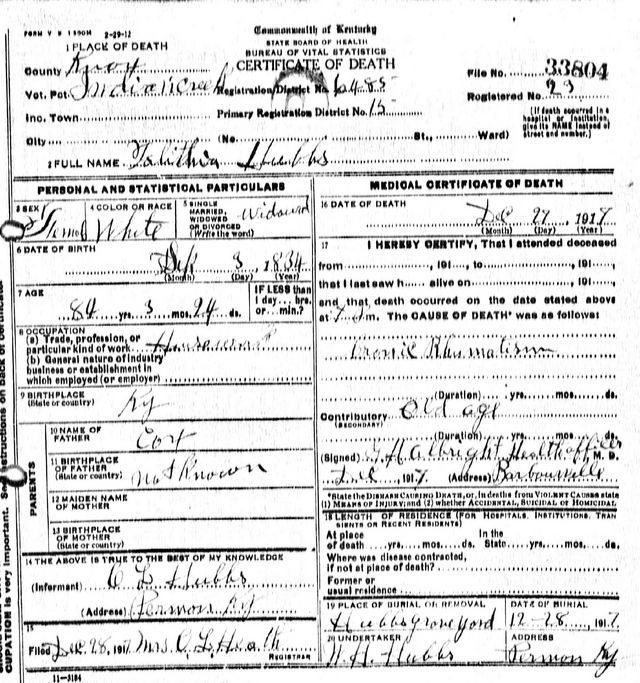 FORM V S 1 500M 2-29-12
Commonwealth of Kentucky
STATE BOARD OF HEALTH
BUREAU OF VITAL STATISTICS
CERTIFICATE OF DEATH
1 PLACE OF DEATH
County Knox
Vot. Pct. Indian Creek Registration District No. 6485
File No. 33804
Registered No. 23
Inc. Town Primary Registration District No. 15
(If death occurred in a hospital or institution, give its NAME instead of street and number.)
City (No. St., Ward)
2 FULL NAME Tabitha Hubbs
PERSONAL AND STATISTICAL PARTICULARS
3 SEX Female
4 COLOR OR RACE White
5 SINGLE MARRIED, WIDOWED OR DIVORCED (Write the word) Widowed
6 DATE OF BIRTH
3 1834
(Month) (Day) (Year)
7 AGE
84 yrs. 3 mos. 24 ds.
IF LESS than 1 day... hrs. or... min.?
8 OCCUPATION
(a) Trade, profession, or particular kind of work Housework
(b) General nature of industry
business or establishment in
which employed (or employer)
9 BIRTHPLACE
(State or country) Ky
PARENTS
10 NAME OF FATHER Cox
11 BIRTHPLACE OF FATHER
(State or country) not known
12 MAIDEN NAME OF MOTHER
13 BIRTHPLACE OF MOTHER
(State or country)
14 THE ABOVE IS TRUE TO THE BEST OF MY KNOWLEDGE
(Informant) C L Hubbs
(Address) Permon Ky
15
Filed Dec 28, 1917 Mrs. C. L. Heath
REGISTRAR
11-3184
MEDICAL CERTIFICATE OF DEATH
16 DATE OF DEATH
Dec 27, 1917
(Month) (Day) (Year)
17 I HEREBY CERTIFY, That I attended deceased
from , 191 , to , 191 ,
that I last saw h alive on , 191 ,
and that death occurred on the date stated above
at 7 m. The CAUSE OF DEATH* was as follows:
Cronic Rhumatism
(Duration) yrs. mos. ds.
Contributory Old age
(SECONDARY)
(Duration) yrs. mos. ds.
(Signed) Albright Health Officer M. D.
Dec 1917. (Address) Barbourville
*State the DISEASE CAUSING DEATH, or, in deaths from VIOLENT CAUSES state
(1) MEANS OF INJURY; and (2) whether ACCIDENTAL, SUICIDAL or HOMICIDAL
18 LENGTH OF RESIDENCE (FOR HOSPITALS, INSTITUTIONS, TRANSIENTS OR RECENT RESIDENTS)
At place of death yrs. mos. ds. In the State yrs. mos. ds.
Where was disease contracted,
if not at place of death?
Former or
usual residence
19 PLACE OF BURIAL OR REMOVAL
Hubbs graveyard
DATE OF BURIAL
12-28, 1917
20 UNDERTAKER
W. H. Hubbs
ADDRESS
Permon Ky